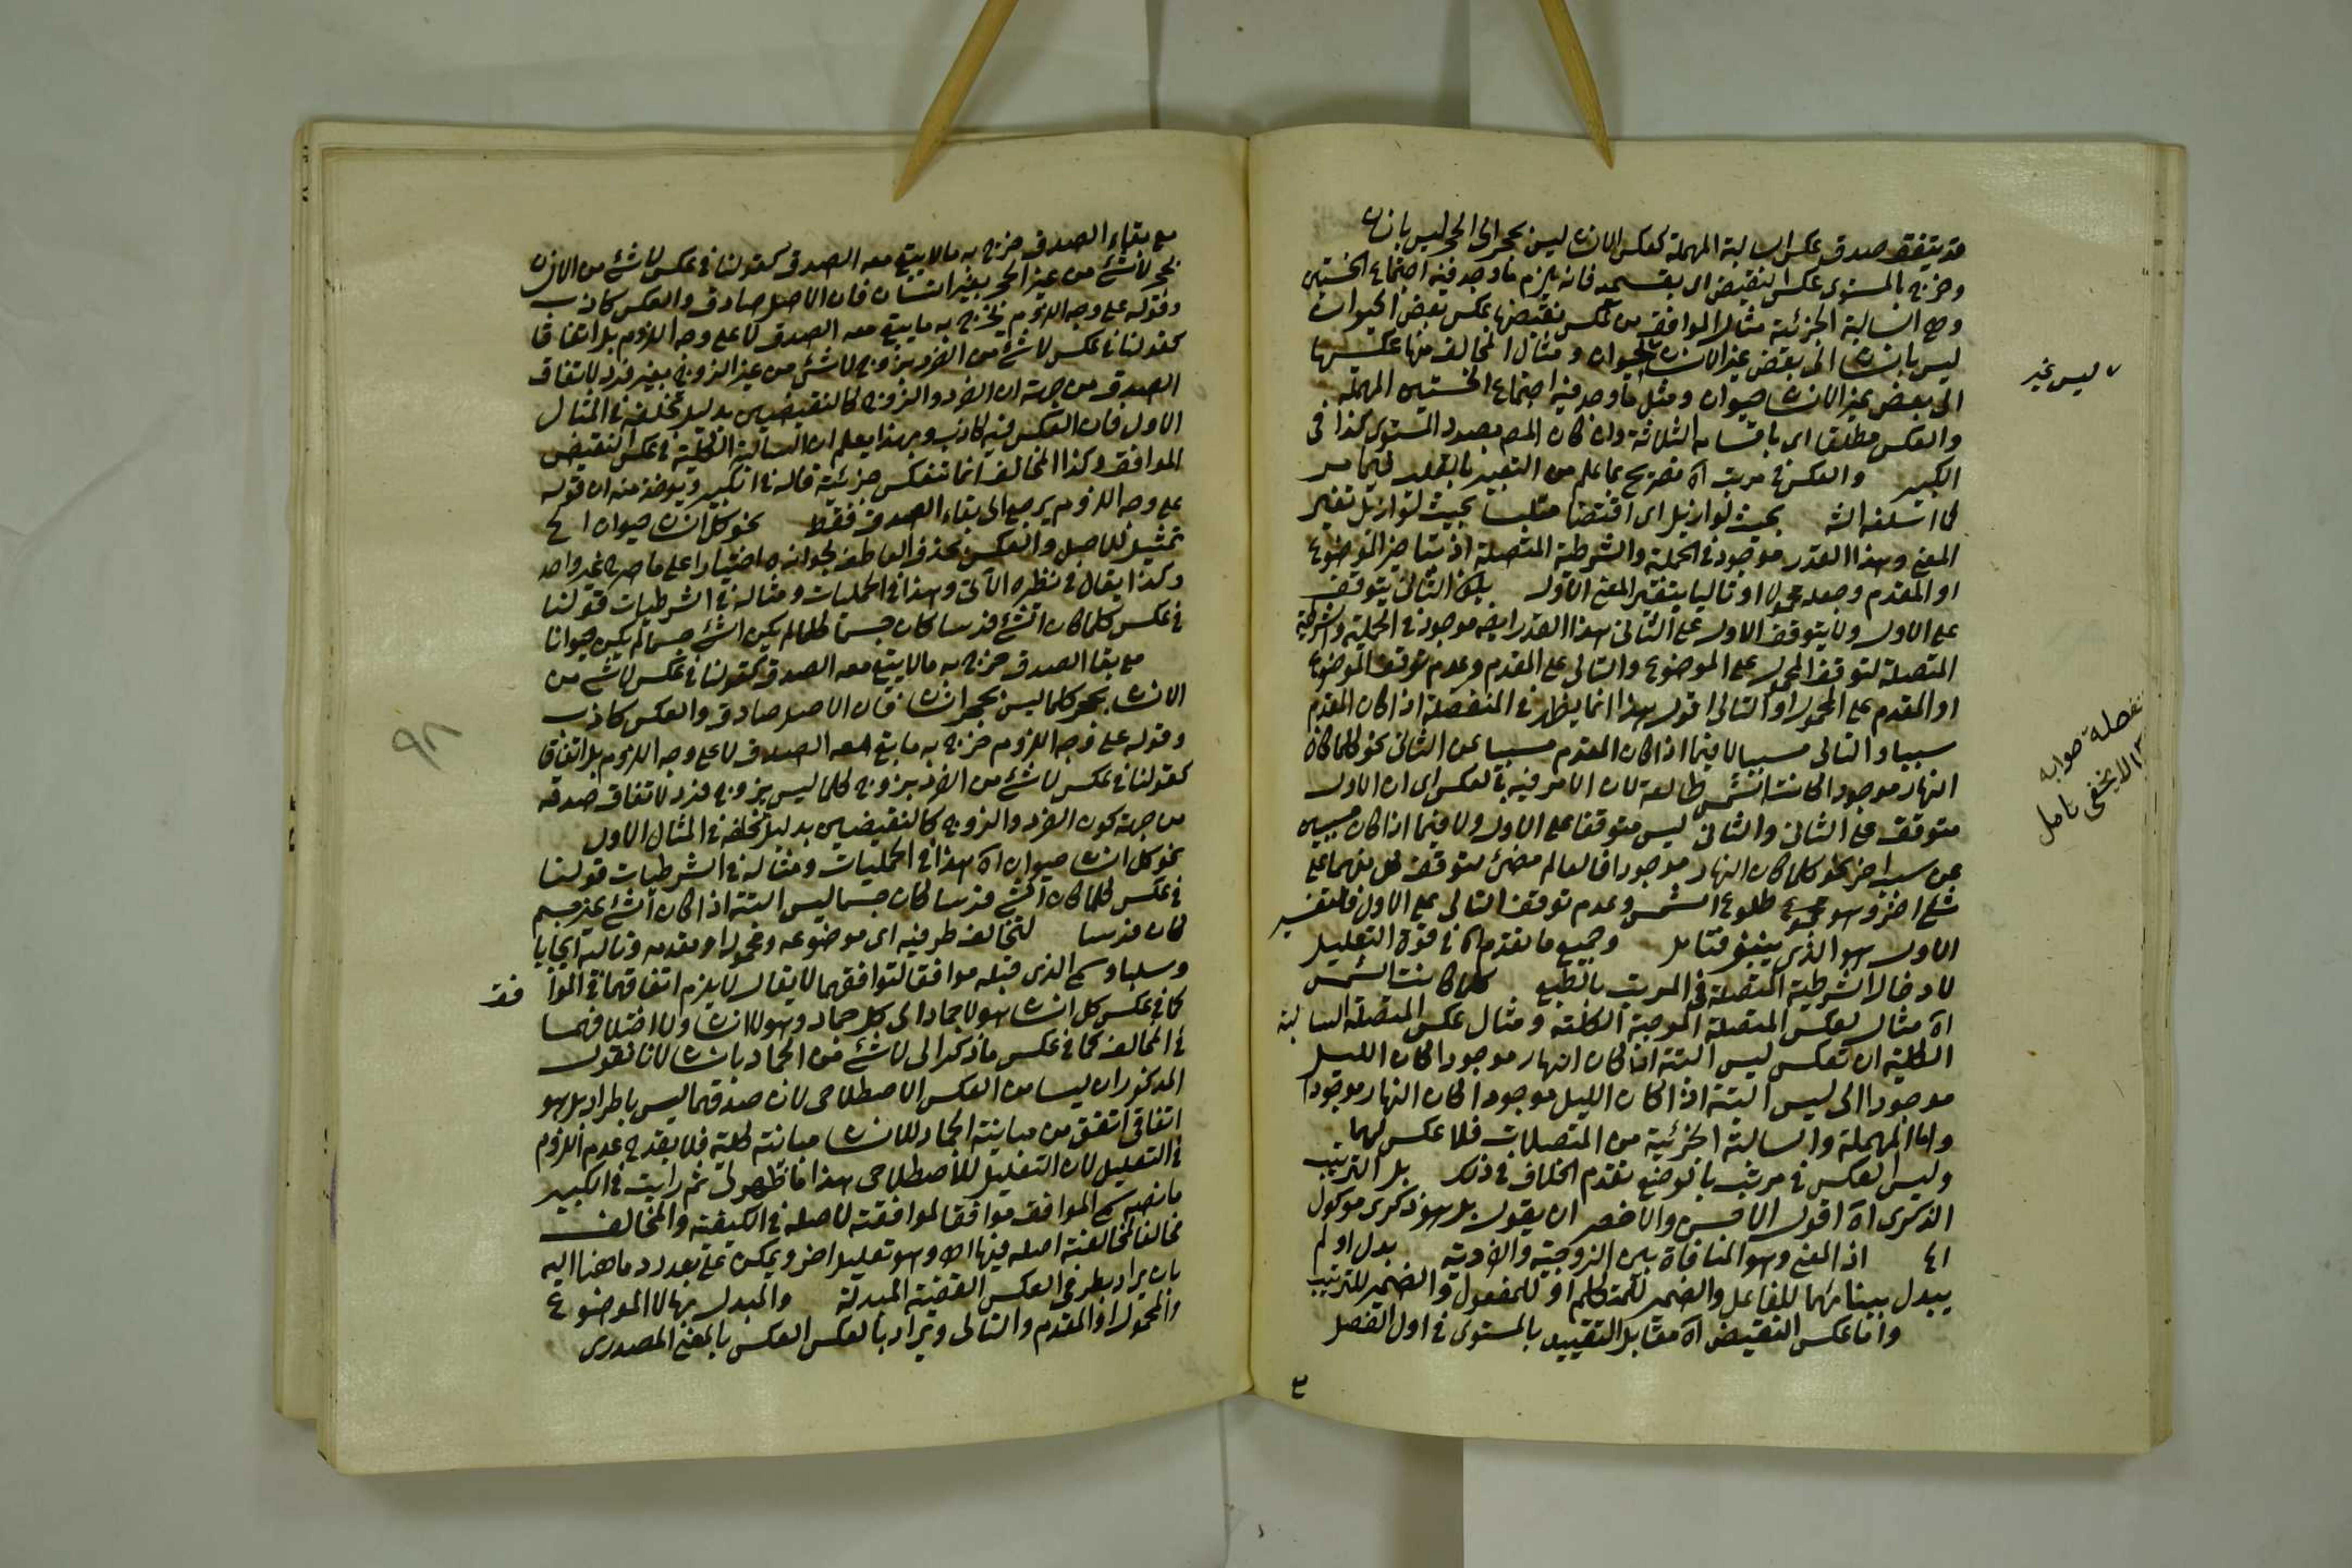 قد يتفق صدق عكس السالبة المهملة كعكس الانسان ليس بحجر الى الحجر ليس بانسان
وخرج بالمستوى عكس النقيض اى بقسميه فانه يلزم ما وجد فيه اجتماع الخستين
وهى السالبة الجزئية مثال الموافق من عكس نقيضها عكس بعض الحيوان
ليس بانسان الى بعض غير الانسان لحيوان ومثال المخالف منها عكسها
الى بعض غير الانسان حيوان ومثل ما وجد فيه اجتماع الخستين المهملة
والعكس مطلقا اى باقسامه الثلاثة وان كان المصـ بصدد المستوى كذا فى
الكبير والعكس فى مرتب اه تصريح بما علم من التعبير بالقلب فيما مر
لما اسلفه الشـ بحيث لو ازيل اى اقتضا متلبسا بحيث لو ازيل تغير
المعنى وهذا القدر موجود فى الحملية والشرطية المتصلة اذ بتاخير الموضوع
او المقدم وجعله محمولا او تاليا يتغير المعنى الاول بل الثانى يتوقف
على الاول ولا يتوقف الاول على الثانى هذا القدر ايضه موجود فى الحملية والشرطية
المتصلة لتوقف المحمول على الموضوع والتالى على المقدم وعدم توقف الموضوع
او المقدم على المحمول او التالى اقول هذا انما يظهر فى المنفصلة اذا كان المقدم
سببا والتالى مسببا لا فيما اذا كان المقدم مسببا عن الثانى نحو كلما كان
النهار موجودا كانت الشمس طالعة لان الامر فيه بالعكس اى ان الاول
متوقف على الثانى والثانى ليس متوقفا على الاول ولا فيما اذا كان مسببين
عن سبب اخر نحو كلما كان النهار موجودا فالعالم مضئ لتوقف كل منهما على
شئ اخر وهو طلوع الشمس وعدم توقف التالى على الاول فالتفسير
الاول هو الذى ينبغى فتامل وجميع ما تقدم اه فى قوة التعليل
لادخال الشرطية المتصلة فى المرتب بالطبع كلما كانت الشمس
اه مثال لعكس المتصلة الموجبة الكلية ومثال عكس المتصلة السالبة
الكلية ان تعكس ليس البتة اذا كان النهار موجودا كان الليل
موجودا الى ليس البتة اذا كان الليل موجودا كان النهار موجودا
واما المهملة والسالبة الجزئية من المتصلات فلا عكس لهما
وليس العكس فى مرتب بالوضع تقدم الخلاف فى ذلك بل الترتيب
الذكرى اه اقول الاحسن والاخصر ان يقول بل هو ذكرى موكول
اذ المعنى وهو المنافاة بين الزوجية والفردية بدل او لم
يبدل ببنائهما للفاعل والضمير للمتكلم او للمفعول والضمير للترتيب
واما عكس النقيض اه مقابل التقييد بالمستوى فى اول الفصل
ليس غير
تفصله صوابه
لا يخفى تامل
مع بقاء الصدق خرج به ما لا يبقى معه الصدق كقولنا فى عكس لا شئ من الانسان
بحجر لا شئ من غير الحجر بغير انسان فان الاصل صادق والعكس كاذب
وقوله على وجه اللزوم يخرج به ما يبقى معه الصدق لا على وجه اللزوم بل اتفاقا
كقولنا فى عكس لا شئ من الفرد بزوج لا شئ من غير الزوج بغير فرد لاتفاق
الصدق من جهة ان الفرد والزوج كالنقيضين بدليل تخلفه فى المثال
الاول فان العكس فيه كاذب وبهذا يعلم ان السالبة الكلية فى عكس النقيض
الموافق وكذا المخالف انما تنعكس جزئية قاله فى الكبير ويؤخذ منه ان قوله
على وجه اللزوم يرجع الى بقاء الصدق فقط نحو كل انسان حيوان الخ
تمثيل للاصل والعكس بحذف العاطف لجوازه اختيارا على ما صرح غير واحد
وكذا يقال فى نظيره الآتى وهذا فى الحمليات ومثاله فى الشرطيات قولنا
فى عكس كلما كان الشئ فرسا كان جسما كلما لم يكن الشئ جسما لم يكن حيوانا
مع بقا الصدق خرج به ما لا يبقى معه الصدق كقولنا فى عكس لا شئ من
الانسان بحجر كلما ليس بحجر انسان فان الاصل صادق والعكس كاذب
وقوله على وجه اللزوم خرج به ما بقى معه الصدق لا على وجه اللزوم بل اتفاق
كقولنا فى عكس لا شئ من الفرد بزوج كلما ليس بزوج فرد لاتفاق صدقه
من جهة كون الفرد والزوج كالنقيضين بدليل تخلفه فى المثال الاول
نحو كل انسان حيوان اه هذا فى الحمليات ومثاله فى الشرطيات قولنا
فى عكس كلما كان الشئ فرسا كان جسما ليس البتة اذا كان الشئ غير جسم
كان فرسا لتخالف طرفيه اى موضوعه ومحموله او مقدمه وتاليه ايجابا
وسلبا وسمى الذى قبله موافقا لتوافقهما لا يقال لا يلزم اتفاقهما فى الموا
فقـ
كما فى عكس كل انسان هو لا جماد الى كل جماد وهو لا انسان ولا اختلافهما
فى المخالف كما فى عكس ما ذكر الى لا شئ من الجماد بانسان لانا نقول
المذكوران ليسا من العكس الاصطلاحى لان صدقهما ليس باطراد بل هو
اتفاقى اتفق من مباينة الجماد للانسان مباينة كلية فلا يقدح عدم اللزوم
فى التعليل لان التعليل للاصطلاحى هذا ما ظهر لى ثم رايت فى الكبير
ما نصه سمى الموافق موافقا لموافقته لاصله فى الكيفية والمخالف
مخالفا لمخالفته اصله فيها اه وهو تعليل اخر ويمكن على بعد رد ما هنا اليه
بان يراد بطرفى العكس القضية المبدلة والمبدل بها لا الموضوع
والمحمول او المقدم والتالى ويراد بالعكس العكس بالمعنى المصدرى
٩٨